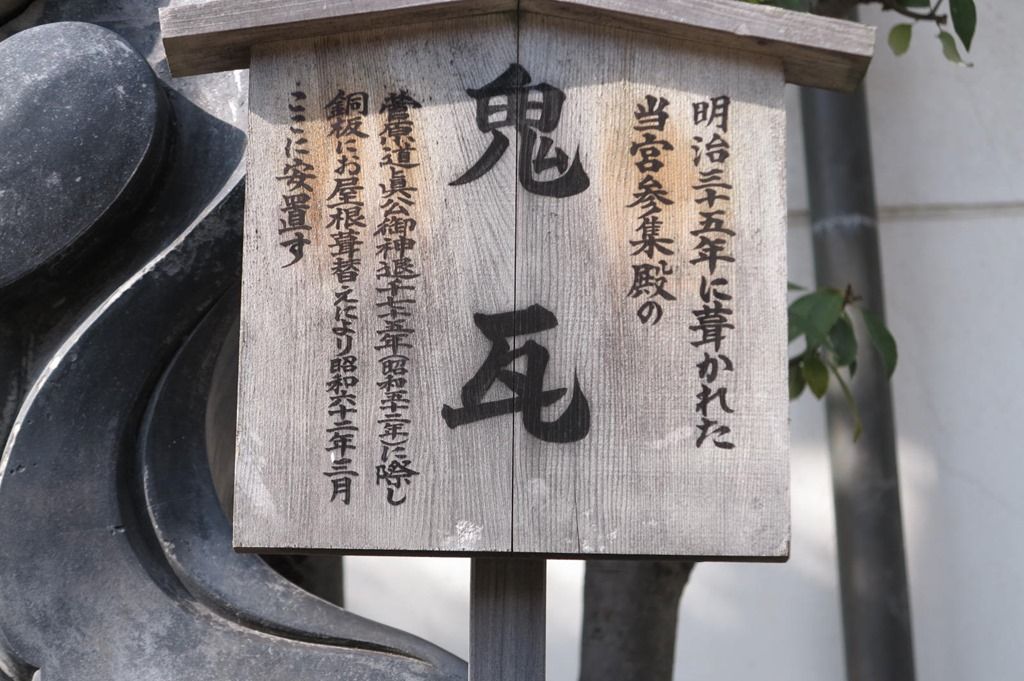 明治三十五年に葺かれた
当宮参集殿の
鬼瓦
菅原道眞公御神退千七十五年(昭和五十二年)に際し
銅板にお屋根葺替えにより昭和六十二年三月
ここに安置す